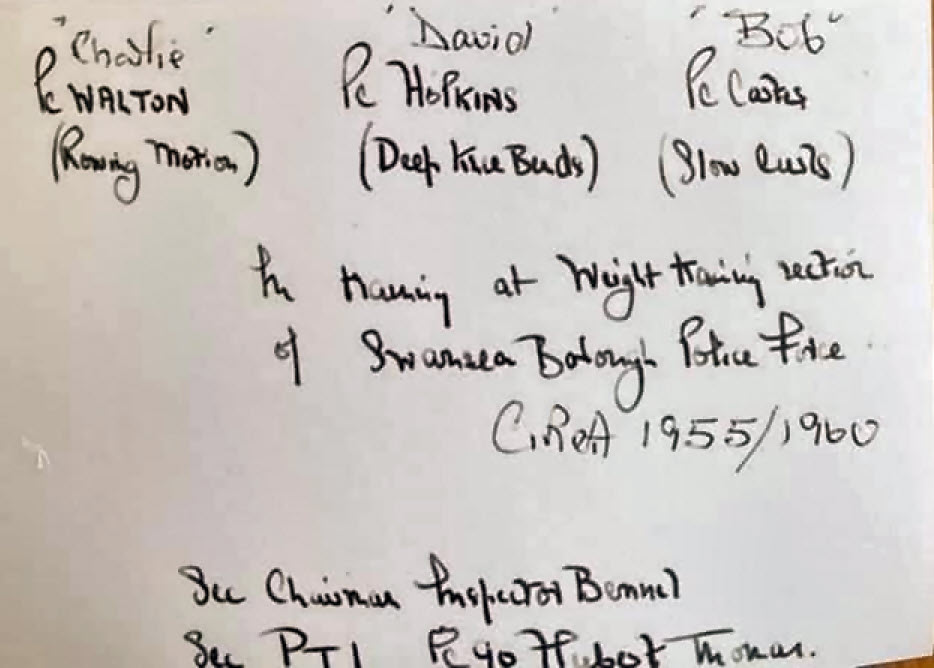 "Charlie" "David" "Bob"
Pc WALTON Pc HOPKINS Pc
(Rowing Motion) (Deep Knee Bends) (Slow Curls)
In training at Weight training section
of Swansea Borough Police Force
CIRCA 1955/1960
Sec Chairman Inspector Bennel
Sec PTI Pc 40 Hubert Thomas.